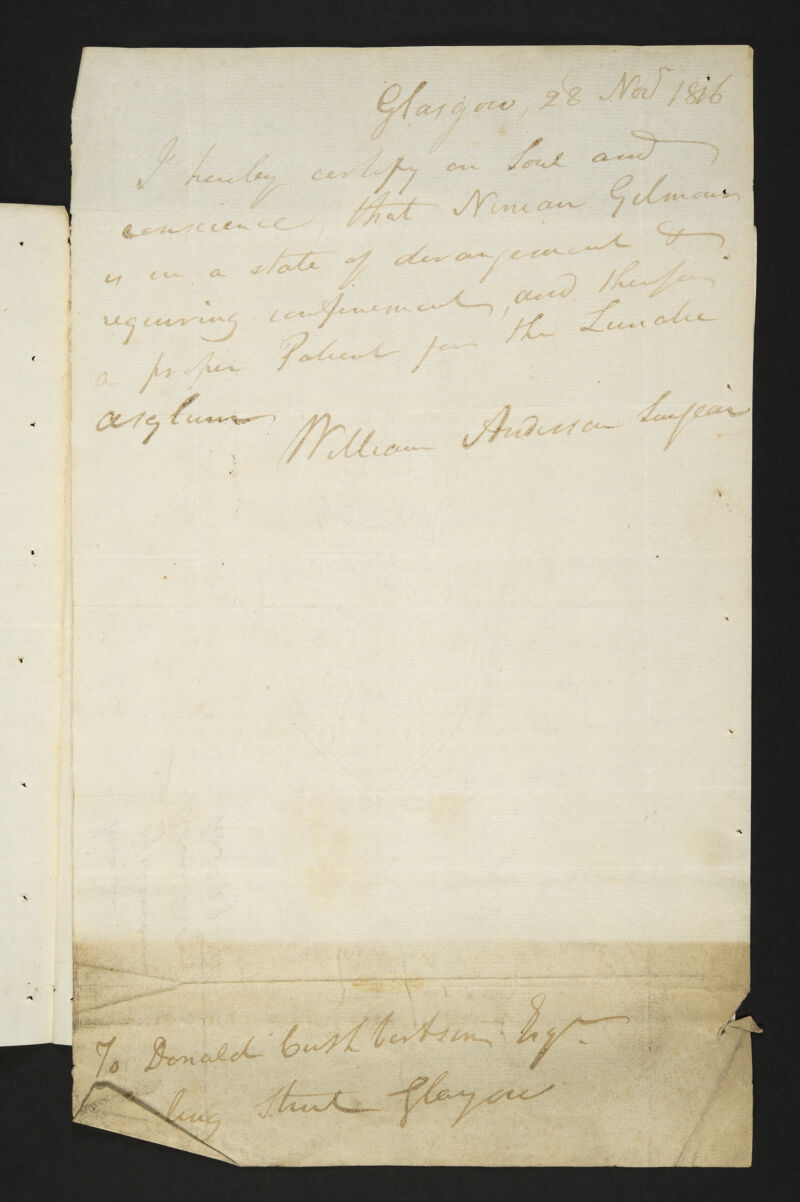 Glasgow, 28 Novr 1816
I hereby certify on Soul and
conscience, that Ninian Gilmour
is in a state of derangement &
requiring confinement, and therefore
a proper Patient for the Lunatic
asylum
William Anderson Surgeon
To Donald Cuthbertson Esqr
King Street Glasgow